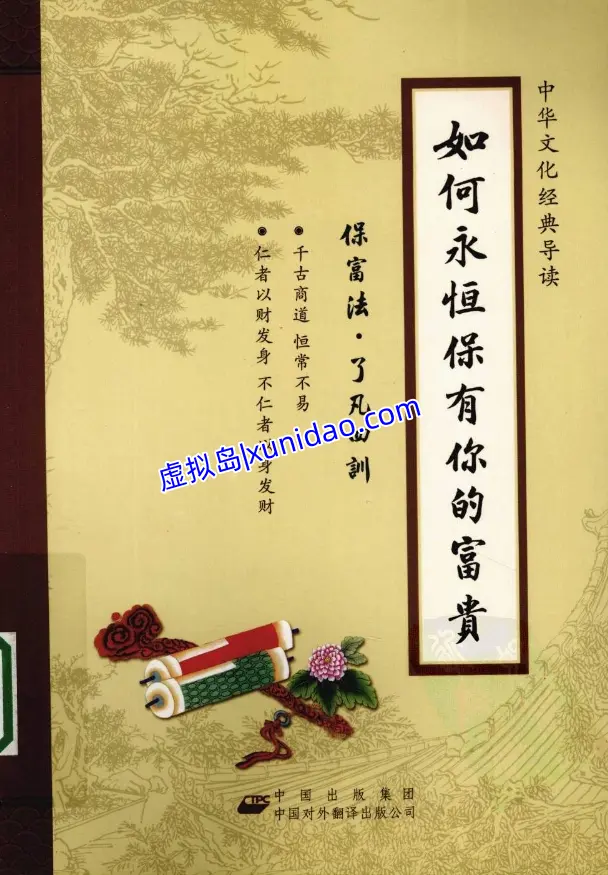 中华文化经典导读
如何永恒保有你的富貴
保富法·了凡四訓
千古商道 恒常不易
仁者以财发身 不仁者以身发财
虚拟岛|xunidao.com
CTPC
中国出版集团
中国对外翻译出版公司